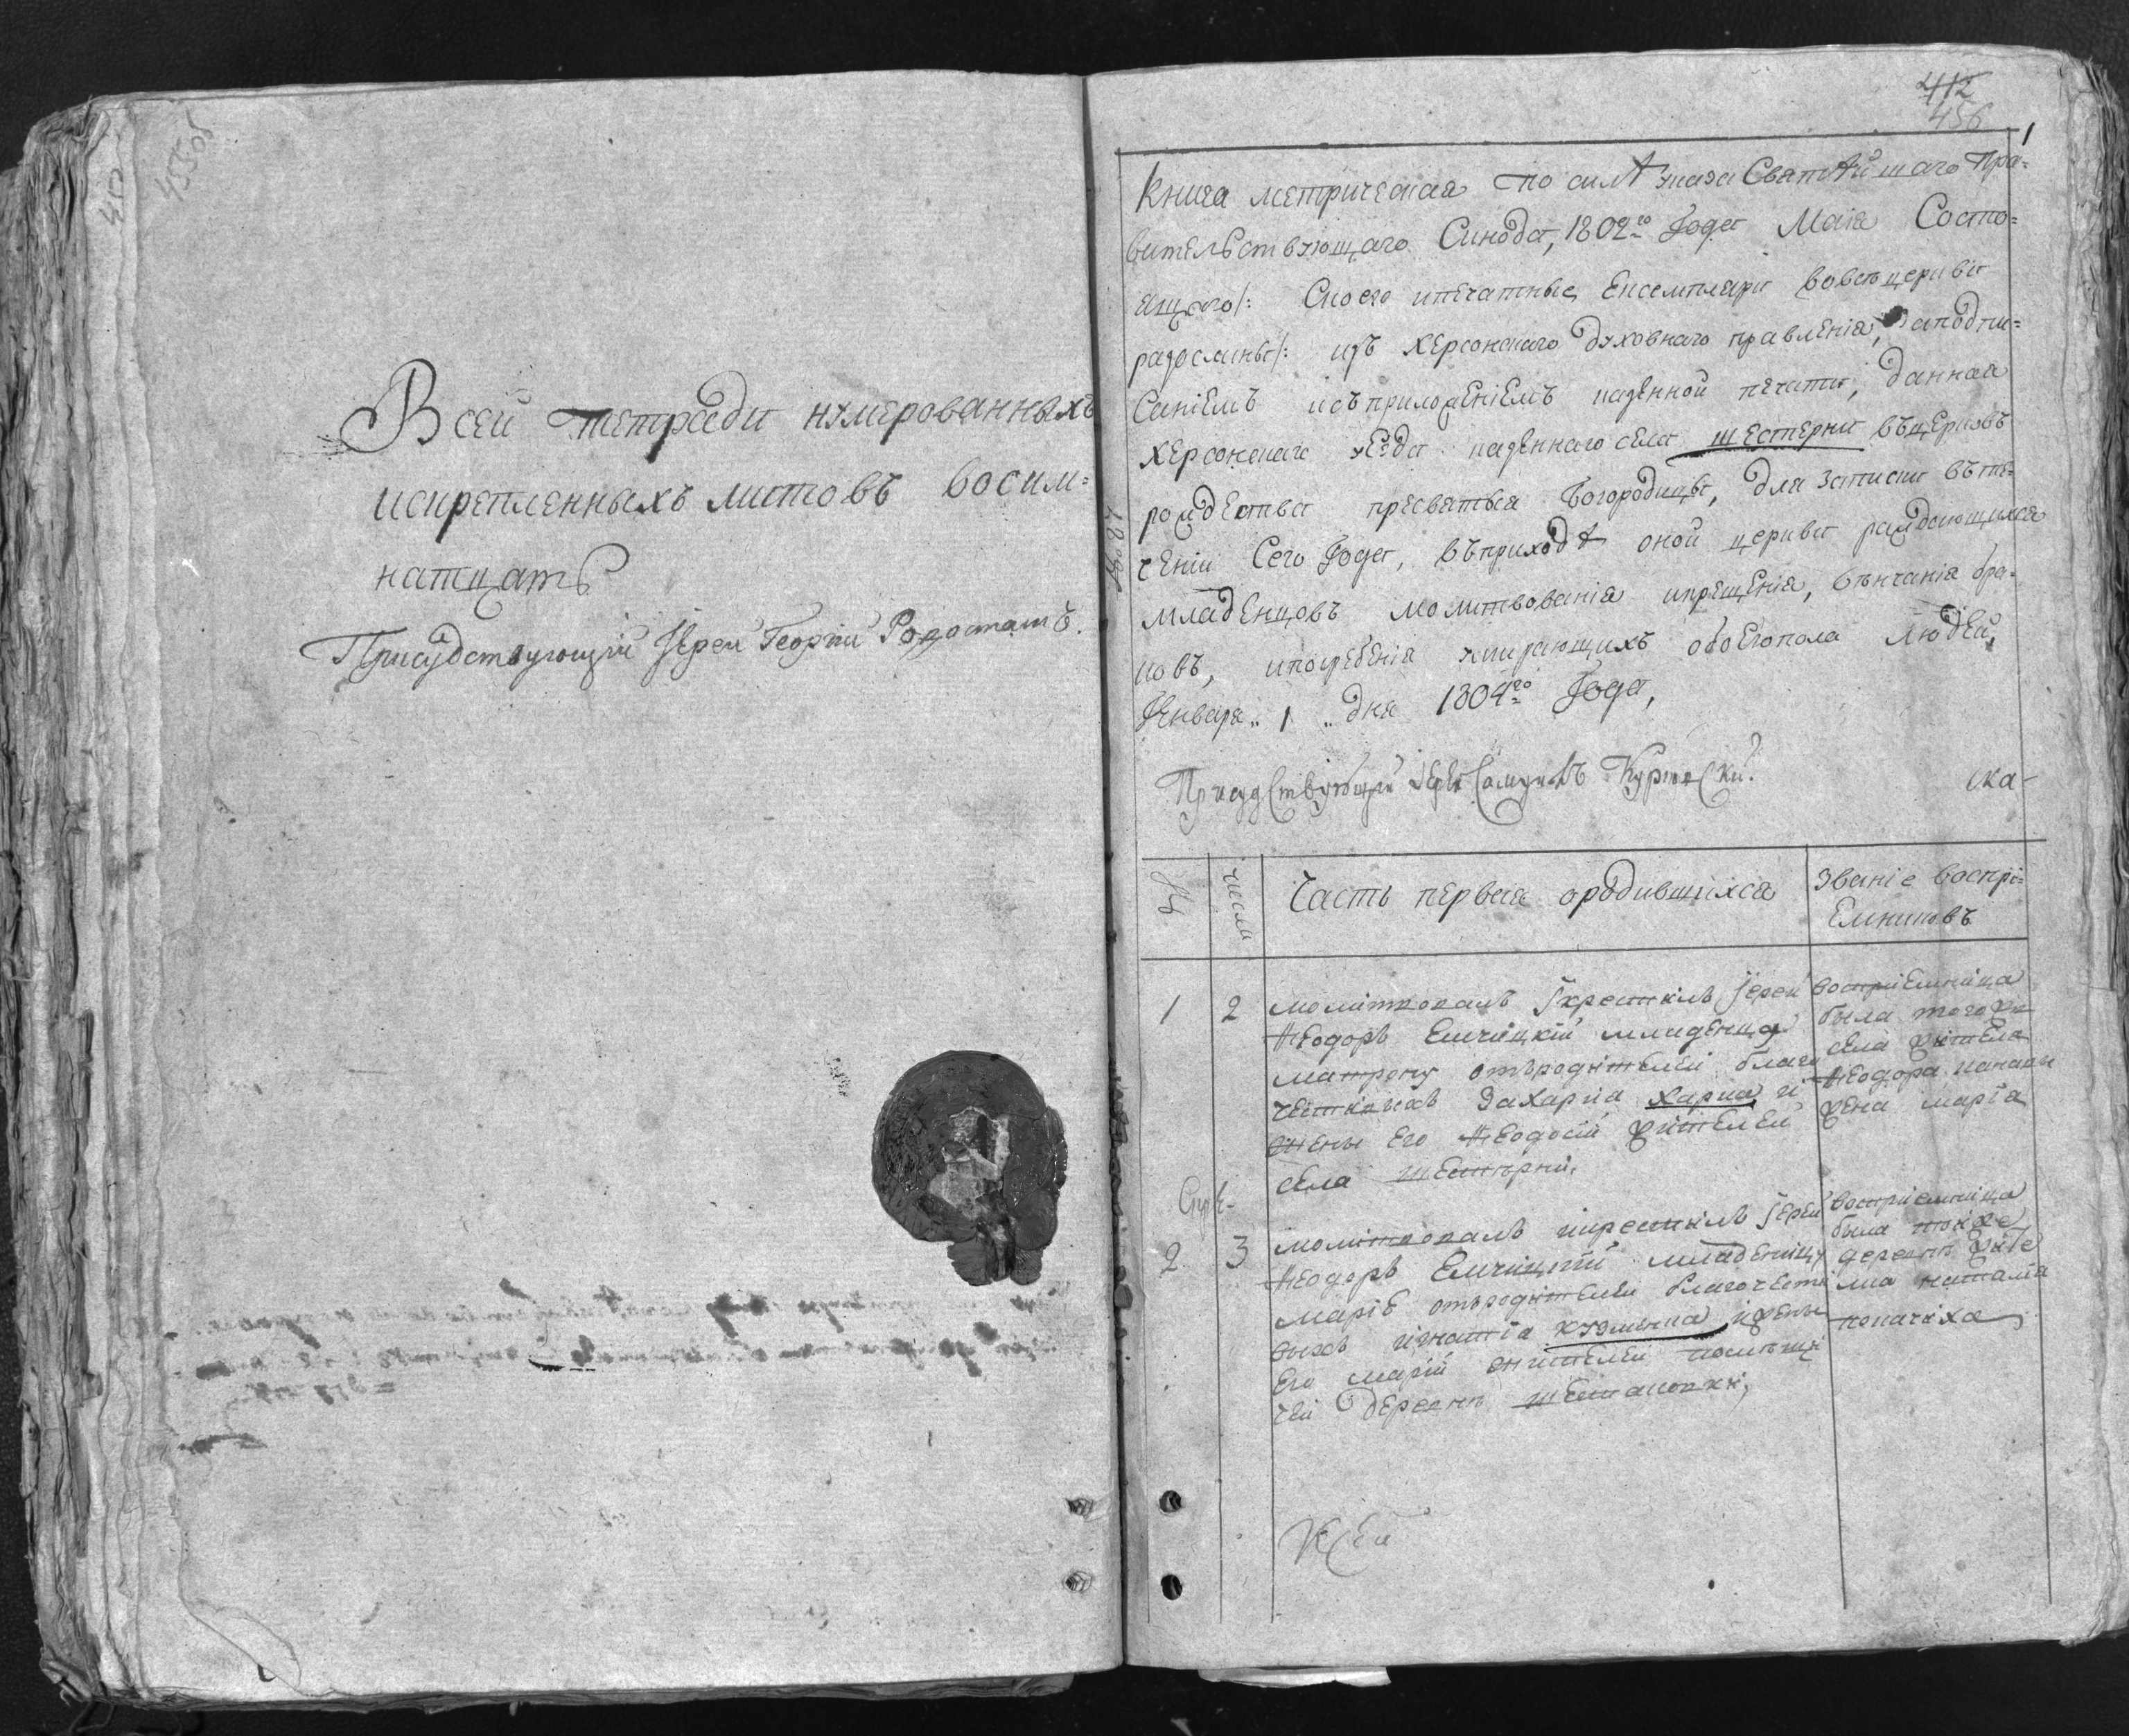 455об
Всей тетради нумерованныхъ
искрепленныхъ листовъ восим=
натцать
Присудствующій Іерей Георгій
412
456
1
Книга метрическая по силѣ указа Святѣйшаго Пра=
вительствующаго Синода, 1802го Года Маія Состо=
ящаго/: Скоего ипечатные Ексемпляри вовсѣ церкви
разосланы/: изъ Херсонскаго духовнаго правленія, заподпи=
саніемъ исъприложеніемъ казенной печати, данная
Херсонскаго уезда казеннаго села Шестерни въцерковъ
рождества пресвятыя Богородицы, для записки въте=
ченіи Сего Года, въприходѣ оной церкви раждающихся
младенцовъ молитвованія икрещенія, вѣнчанія бра=
ковъ, ипогребенія умирающихъ обоегопола людей,
Генваря „ 1 „ дня 1804го Года,
Присудствующій Іерей Самуилъ
ска-
№
числа
Часть первая ородившихся
Званіе воспрі=
емниковъ
1 2 молитвовалъ Ікрестилъ Іерей
Ѳеодоръ Емчицкій младенца
матрону отъродителей благо
честивыхъ Захариа Харка и
жены его Ѳеодосіи жителей
села Шестѣрни,
восприемница
была тогож
села жителя
Ѳеодора
жена марія
2 3 молитвовалъ икрестилъ Іерей
Ѳеодоръ Емчицкій младеницу
маріе отъродителей благочести
выхъ игнатія кузменка ижены
его маріи жителей помѣщи
чей деревнѣ
восприемница
была тойже
деревнѣ жите
лка наталія